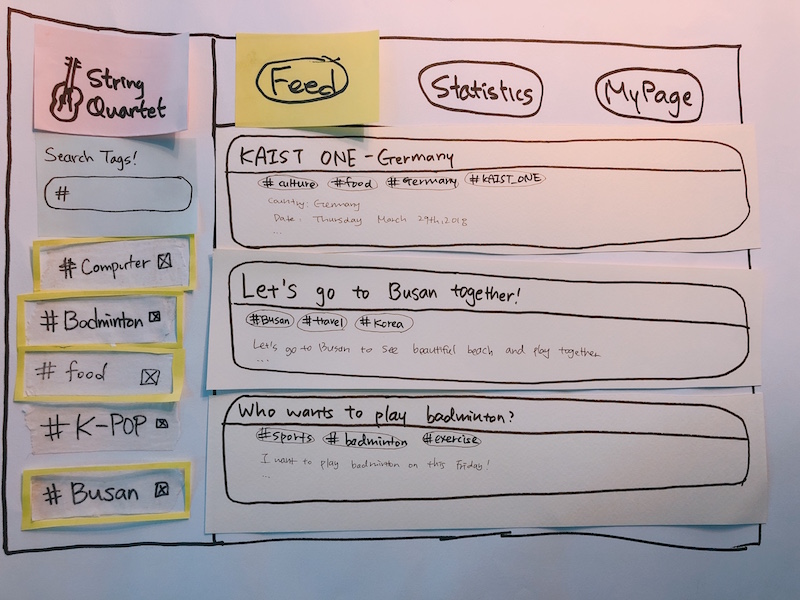 String
Quartet
Feed
Statistics
MyPage
Search Tags!
#
#Computer
#Badminton
#food
#K-POP
#Busan
KAIST ONE - Germany
#culture #food #Germany #KAIST_ONE
Country: Germany
Date: Thursday March 29th, 2018
...
Let's go to Busan together!
#Busan #travel #Korea
Let's go to Busan to see beautiful beach and play together
...
Who wants to play badminton?
#sports #badminton #exercise
I want to play badminton on this Friday!
...